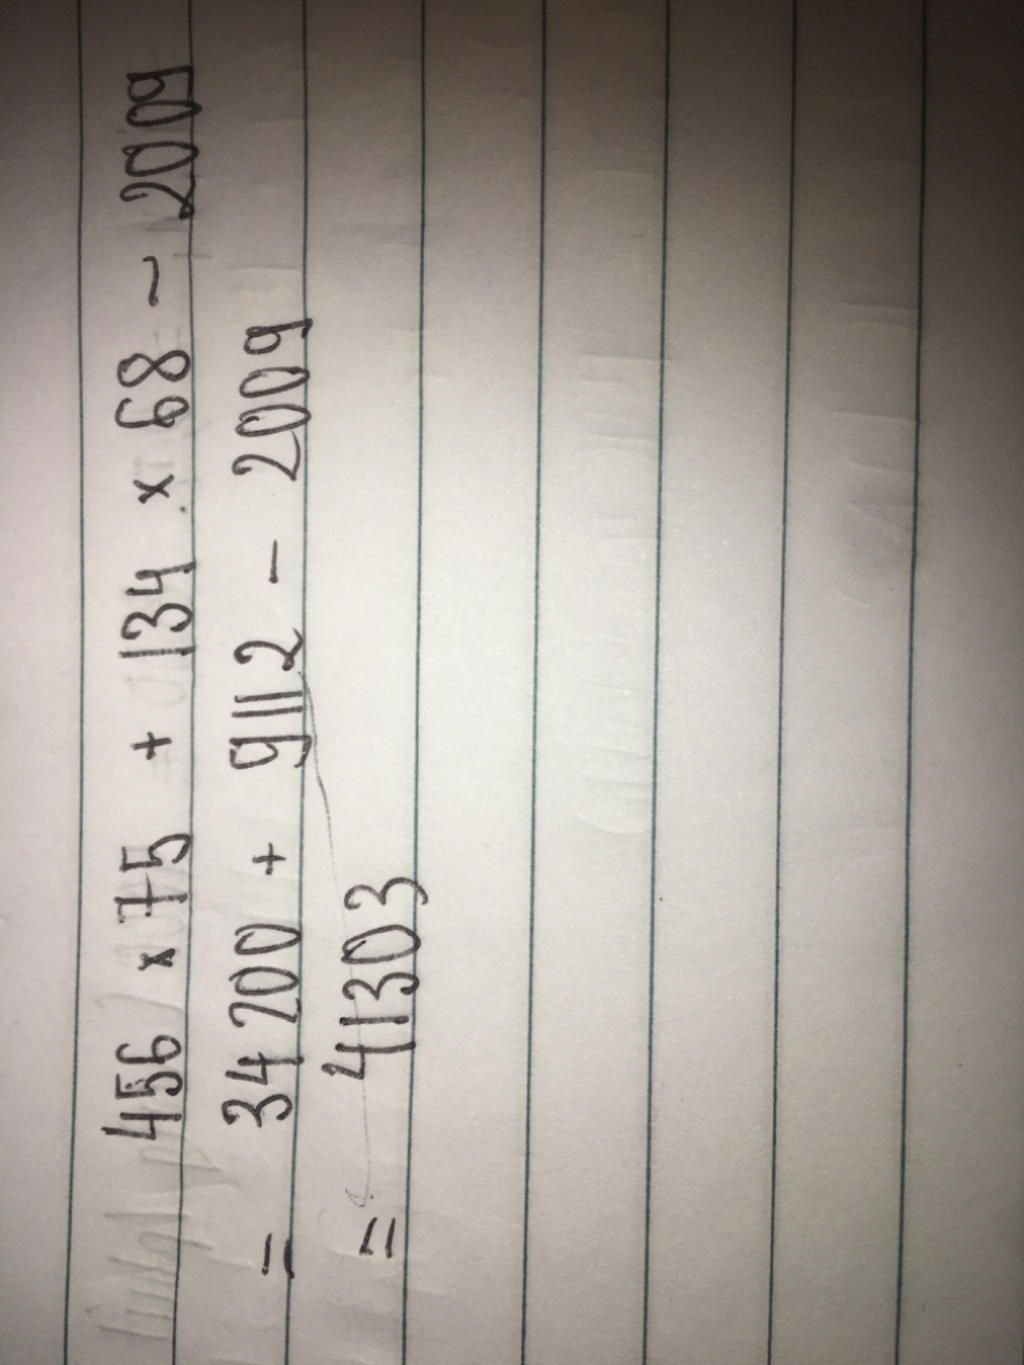 456 × 75 + 134 × 68 - 2009
= 34200 + 9112 - 2009
= 41303